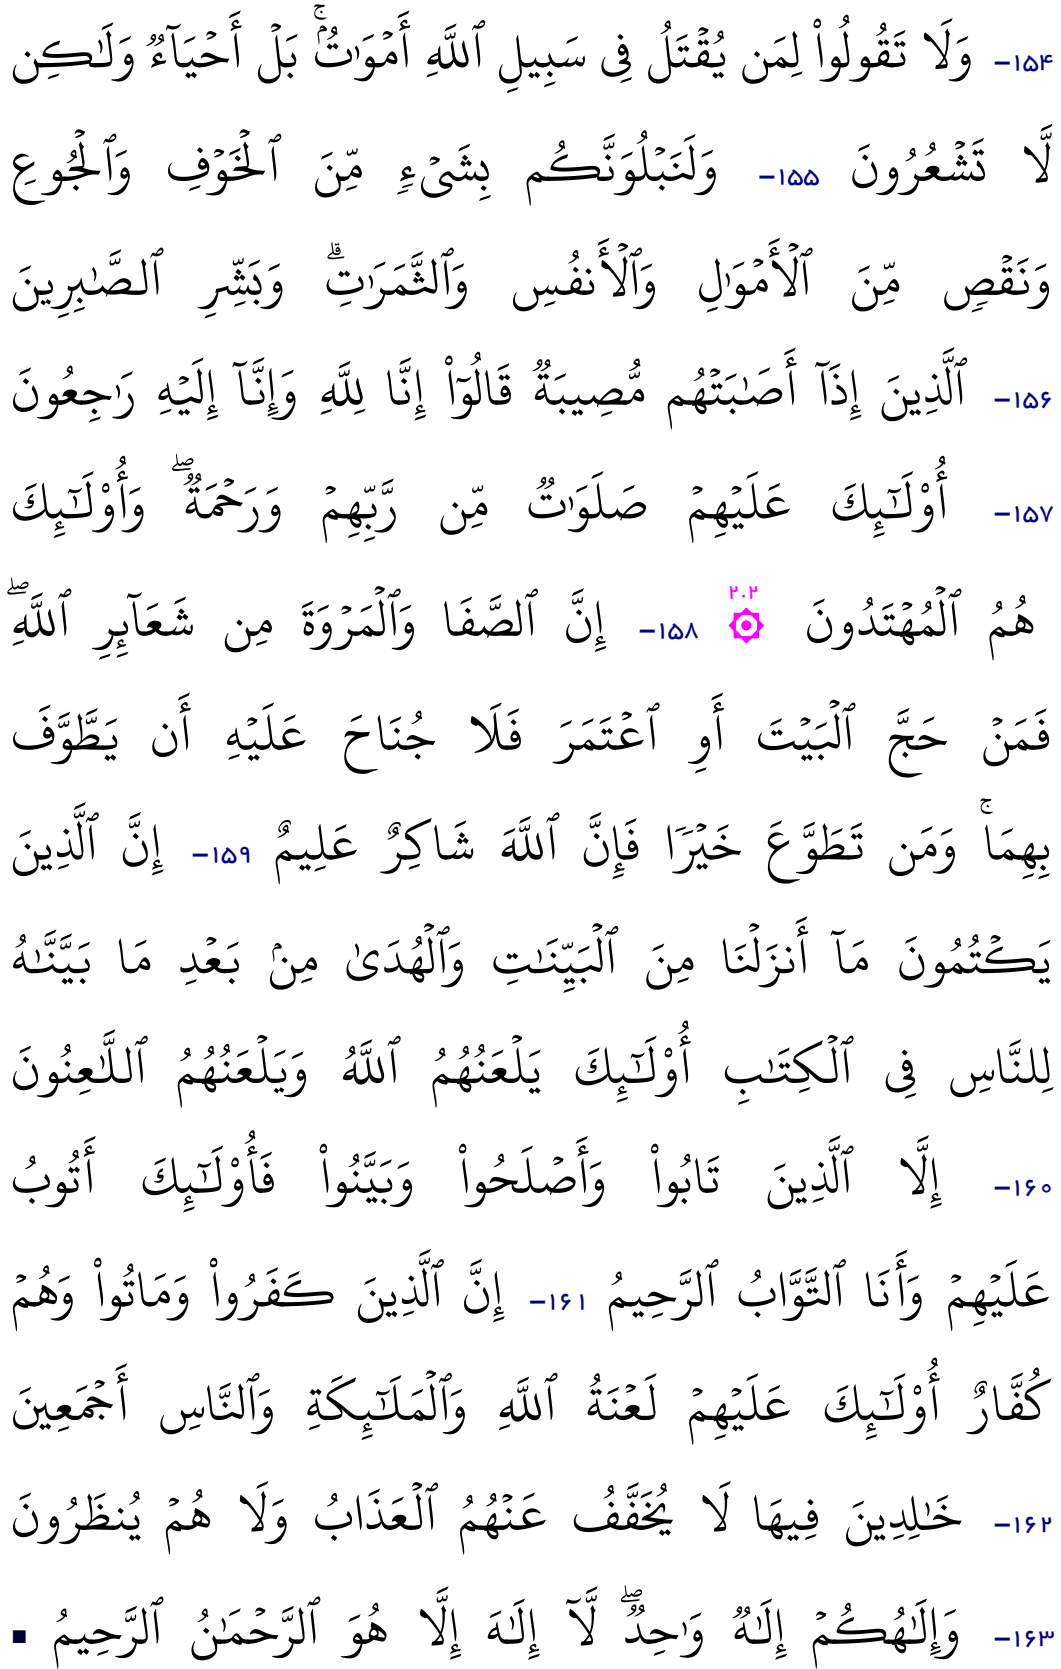 ۱۵۴- وَلَا تَقُولُوا۟ لِمَن يُقْتَلُ فِى سَبِيلِ ٱللَّهِ أَمْوَٰتٌۢ ۚ بَلْ أَحْيَآءٌ وَلَـٰكِن
لَّا تَشْعُرُونَ ۱۵۵- وَلَنَبْلُوَنَّكُم بِشَىْءٍ مِّنَ ٱلْخَوْفِ وَٱلْجُوعِ
وَنَقْصٍ مِّنَ ٱلْأَمْوَٰلِ وَٱلْأَنفُسِ وَٱلثَّمَرَٰتِ ۗ وَبَشِّرِ ٱلصَّـٰبِرِينَ
۱۵۶- ٱلَّذِينَ إِذَآ أَصَـٰبَتْهُم مُّصِيبَةٌ قَالُوٓا۟ إِنَّا لِلَّهِ وَإِنَّآ إِلَيْهِ رَٰجِعُونَ
۱۵۷- أُو۟لَـٰٓئِكَ عَلَيْهِمْ صَلَوَٰتٌ مِّن رَّبِّهِمْ وَرَحْمَةٌ ۖ وَأُو۟لَـٰٓئِكَ
هُمُ ٱلْمُهْتَدُونَ ۲.۲ ۞ ۱۵۸- إِنَّ ٱلصَّفَا وَٱلْمَرْوَةَ مِن شَعَآئِرِ ٱللَّهِ ۖ
فَمَنْ حَجَّ ٱلْبَيْتَ أَوِ ٱعْتَمَرَ فَلَا جُنَاحَ عَلَيْهِ أَن يَطَّوَّفَ
بِهِمَا ۚ وَمَن تَطَوَّعَ خَيْرًا فَإِنَّ ٱللَّهَ شَاكِرٌ عَلِيمٌ ۱۵۹- إِنَّ ٱلَّذِينَ
يَكْتُمُونَ مَآ أَنزَلْنَا مِنَ ٱلْبَيِّنَـٰتِ وَٱلْهُدَىٰ مِنۢ بَعْدِ مَا بَيَّنَّـٰهُ
لِلنَّاسِ فِى ٱلْكِتَـٰبِ أُو۟لَـٰٓئِكَ يَلْعَنُهُمُ ٱللَّهُ وَيَلْعَنُهُمُ ٱللَّـٰعِنُونَ
۱۶۰- إِلَّا ٱلَّذِينَ تَابُوا۟ وَأَصْلَحُوا۟ وَبَيَّنُوا۟ فَأُو۟لَـٰٓئِكَ أَتُوبُ
عَلَيْهِمْ وَأَنَا ٱلتَّوَّابُ ٱلرَّحِيمُ ۱۶۱- إِنَّ ٱلَّذِينَ كَفَرُوا۟ وَمَاتُوا۟ وَهُمْ
كُفَّارٌ أُو۟لَـٰٓئِكَ عَلَيْهِمْ لَعْنَةُ ٱللَّهِ وَٱلْمَلَـٰٓئِكَةِ وَٱلنَّاسِ أَجْمَعِينَ
۱۶۲- خَـٰلِدِينَ فِيهَا لَا يُخَفَّفُ عَنْهُمُ ٱلْعَذَابُ وَلَا هُمْ يُنظَرُونَ
۱۶۳- وَإِلَـٰهُكُمْ إِلَـٰهٌ وَٰحِدٌ ۖ لَّآ إِلَـٰهَ إِلَّا هُوَ ٱلرَّحْمَـٰنُ ٱلرَّحِيمُ ▪